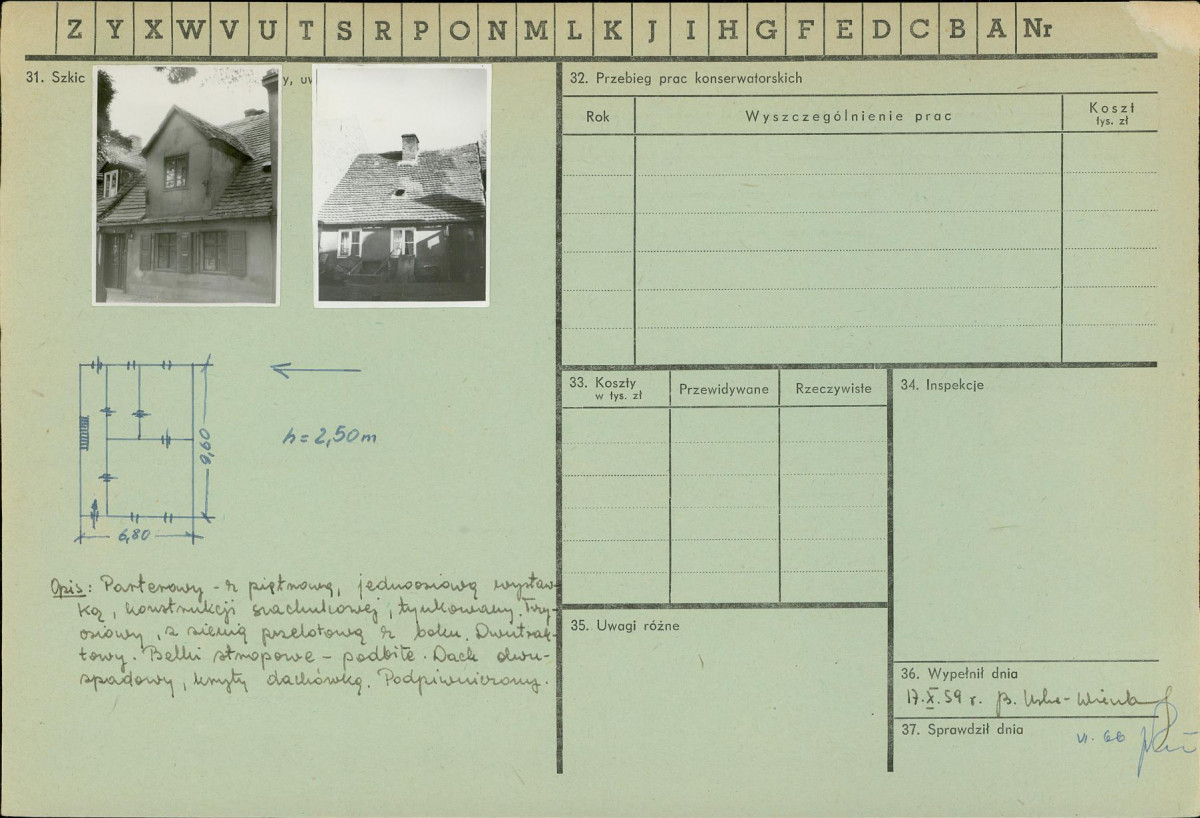 Z Y X W V U T S R P O N M L K J I H G F E D C B A Nr
31. Szkic
y, uw
32. Przebieg prac konserwatorskich
Rok
Wyszczególnienie prac
Koszt
tys. zł
h = 2,50 m
9,60
6,80
Opis: Parterowy - z piętrową, jednoosiową wystaw-
ką, konstrukcji szachulcowej, tynkowany. Trzy-
osiowy, z sienią przelotową z boku. Dwutrak-
towy. Belki stropowe - podbite. Dach dwu-
spadowy, kryty dachówką. Podpiwniczony.
33. Koszty
w tys. zł
Przewidywane
Rzeczywiste
34. Inspekcje
35. Uwagi różne
36. Wypełnił dnia
17.X.59 r. B.
37. Sprawdził dnia
VI. 66